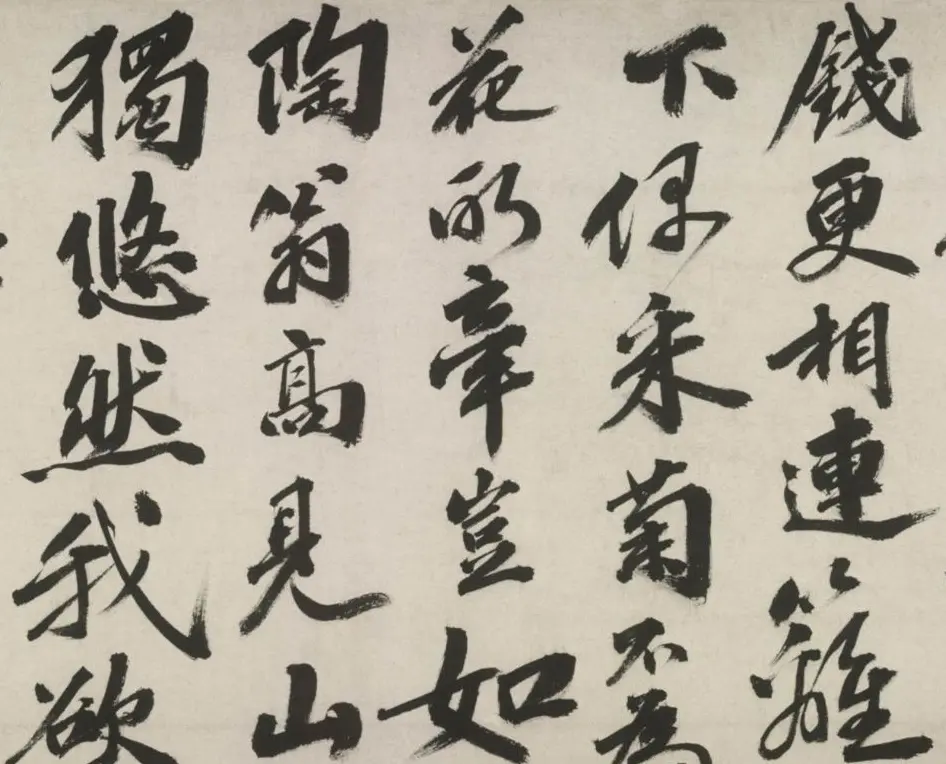 錢更相連籬
下偶采菊不為
花所牽豈如
陶翁高見山
獨悠然我欲